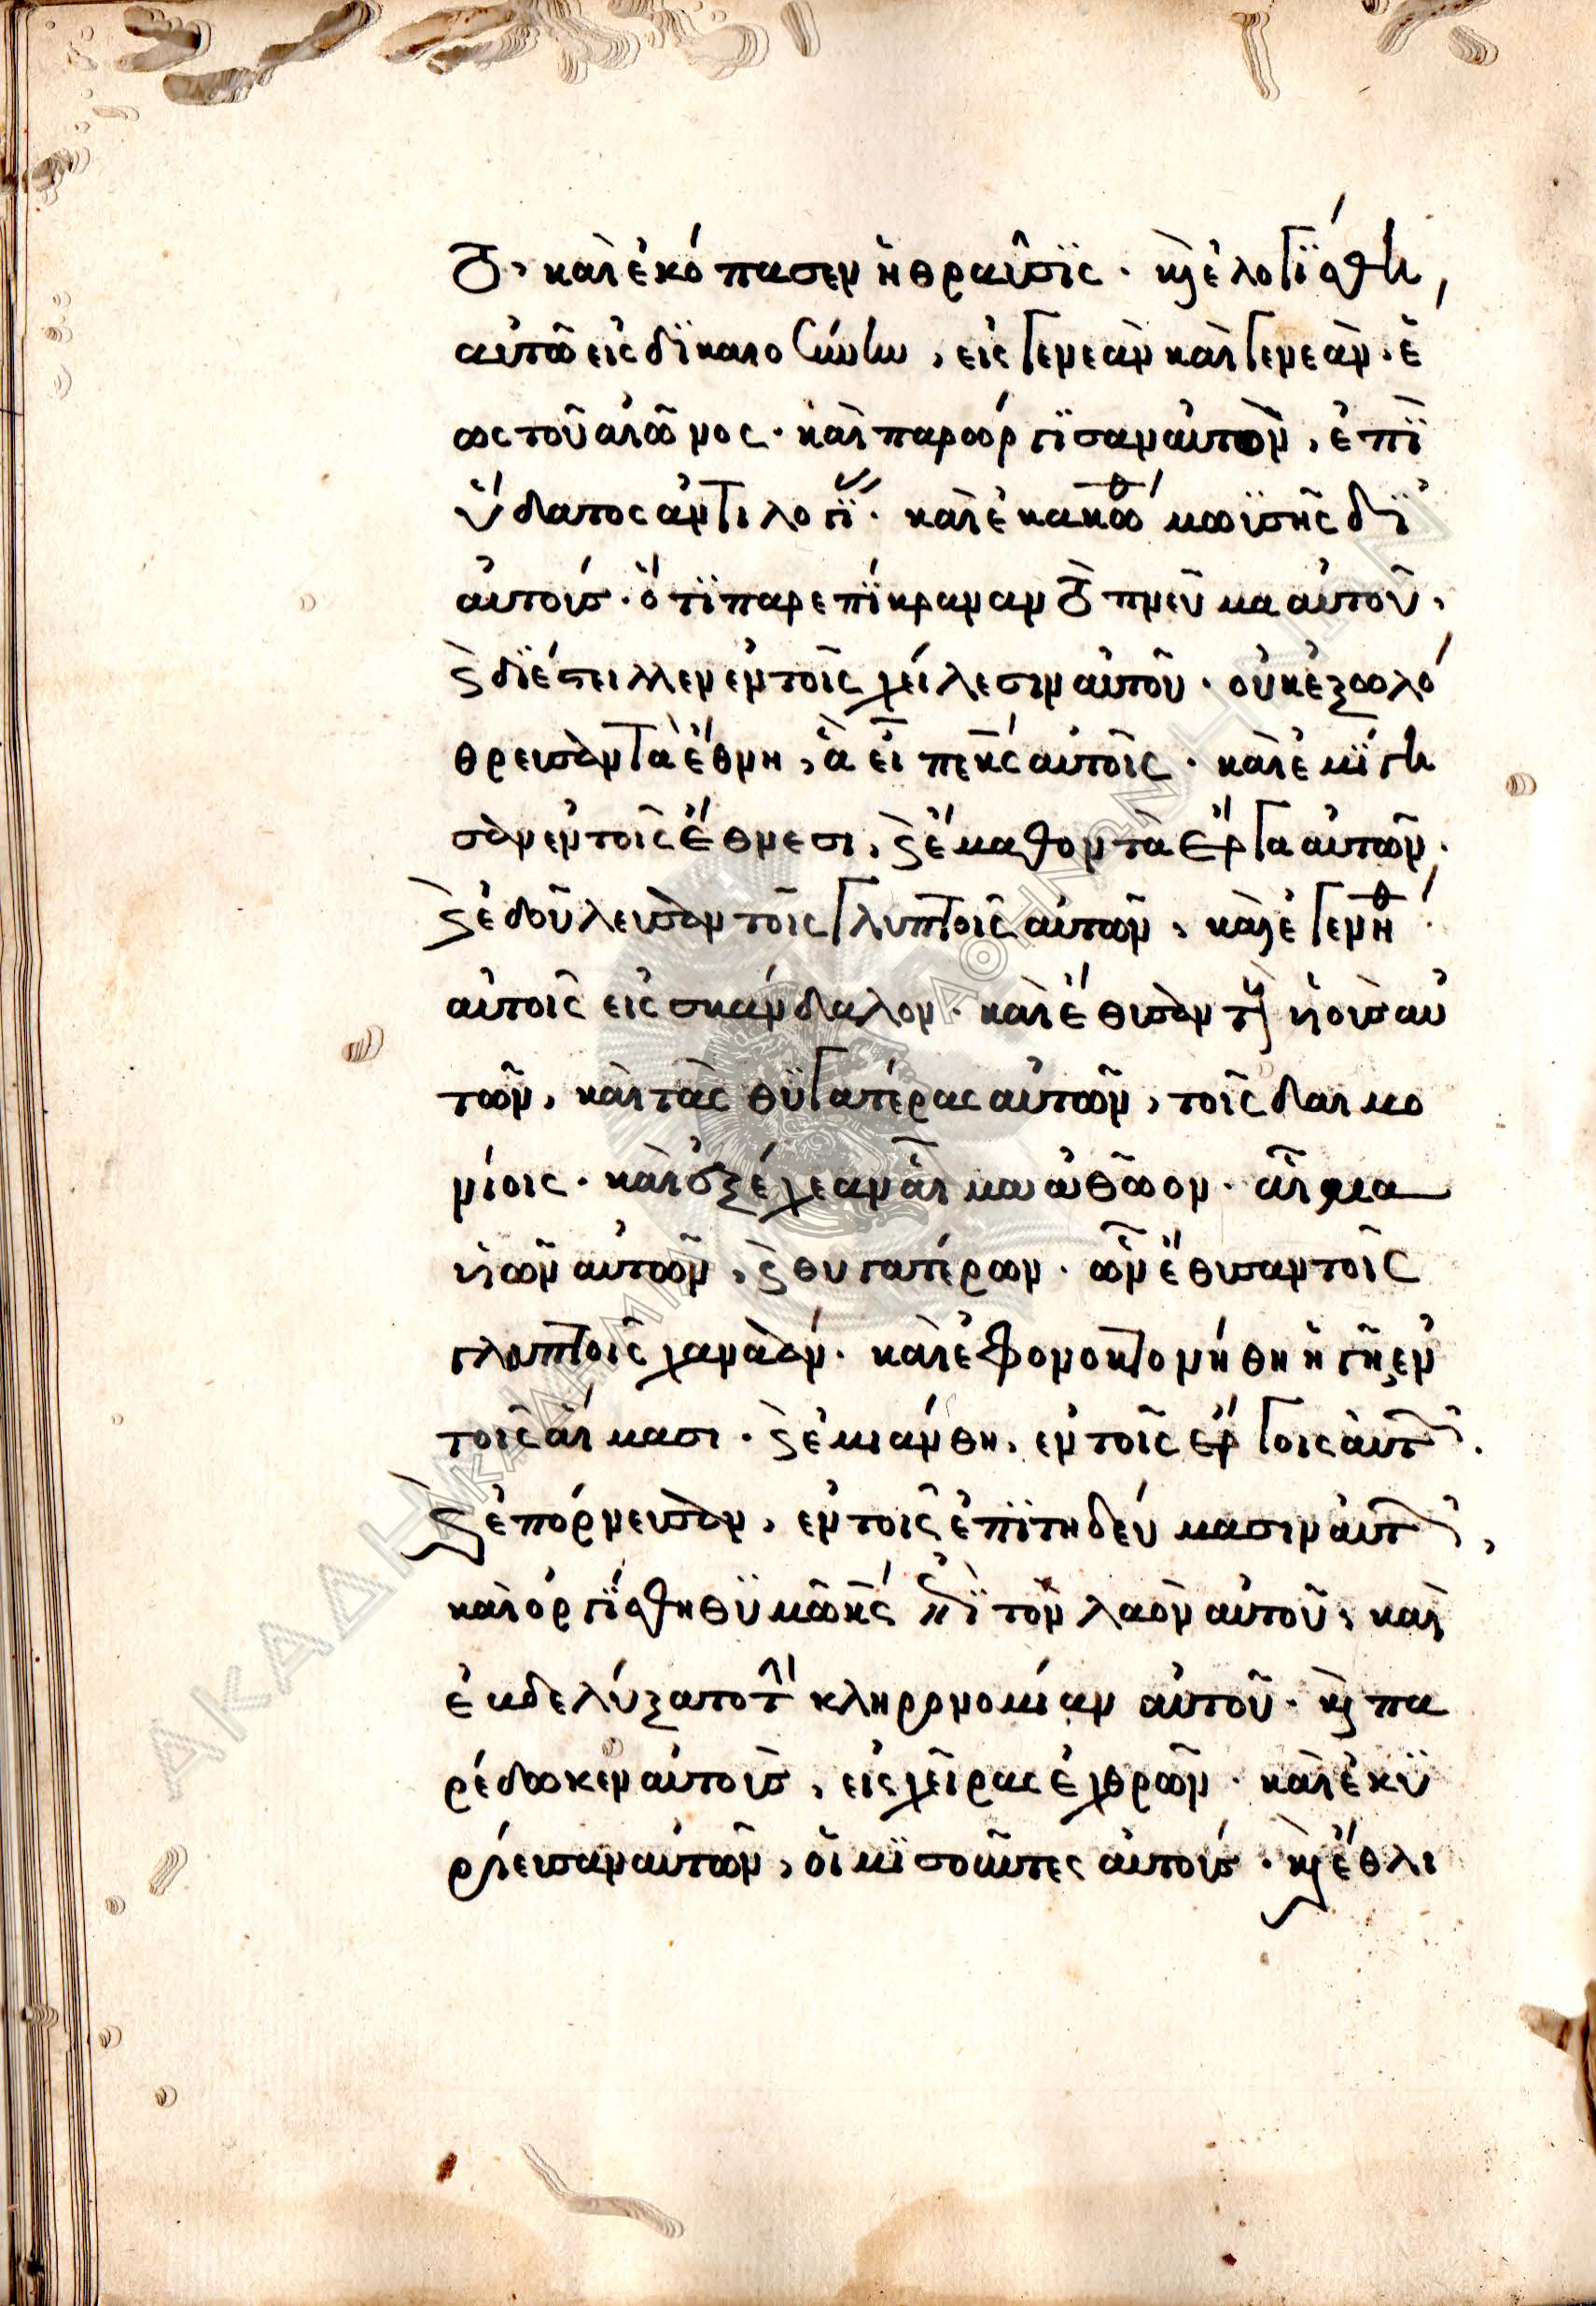 το, καὶ ἐκόπασεν ἡ θραῦσϊς · κ(αὶ) ἐλογΐσθη,
αυτῶ εἰς δϊκαιοσύνην, εἰς γενεὰν καὶ γενεὰν · ἕ
ως τοῦ αἰῶνος · καὶ παρώργϊσαν αὐτὸν, ἐπῒ
ὕδατος ἀντιλογΐ · καὶ ἐκακώθ μωϊσῆς δϊ
αὐτούς · ὅτϊ παρεπΐκραναν τὸ πνεῦμα αὐτοῦ,
(καὶ) δϊέστειλλεν ἐν τοῖς χείλεσιν αὐτοῦ · οὐκ ἐξωλό
θρευσαν τὰ ἔθνη, ἃ εἶπε κς αὐτοῖς · καὶ ἐμΐγη
σαν ἐν τοῖς ἔθνεσι, (καὶ) ἔμαθον τὰ ἔργα αὐτῶν ·
(καὶ) ἐδοῦλευσαν τοῖς γλυπτοῖς αὐτῶν, καὶ ἐγενήθ
αὐτοῖς εἰς σκάνδαλον · καὶ ἔθυσαν τ(οὺς) ὑιοὺς αὐ
τῶν, καὶ τὰς θϋγατέρας αὐτῶν, τοῖς δαιμο
νίοις · καὶ ἐξέχεαν αἷμα ἀθῶον · αἷμα
ὑιῶν αὐτῶν, (καὶ) θυγατέρων · ὧν ἔθυσαν τοῖς
γλυπτοῖς χαναάν · καὶ ἐφονοκτονήθη ἡ γῆ, ἐν
τοῖς αἵμασι · (καὶ) ἐμιάνθη, ἐν τοῖς ἔργοις αὐτ(ῶν) ·
(καὶ) ἐπόρνευσαν, ἐν τοῖς ἐπϊτηδεύμασιν αὐτ(ῶν),
καὶ ὀργΐσθη θϋμῶ κς ἐπῒ τὸν λαὸν αὐτοῦ, καὶ
ἐβδελύξατο τ(ὴν) κληρονομίαν αὐτοῦ · κ(αὶ) πα
ρέδωκεν αὐτοὺς, εἰς χεῖρας ἐχθρῶν · καὶ ἐκϋ
ρίευσαν αὐτῶν, οἱ μϊσοῦντες αὐτούς · κ(αὶ) ἔθλι
ΑΚΑΔΗΜΙΑ ΑΘΗΝΩΝ